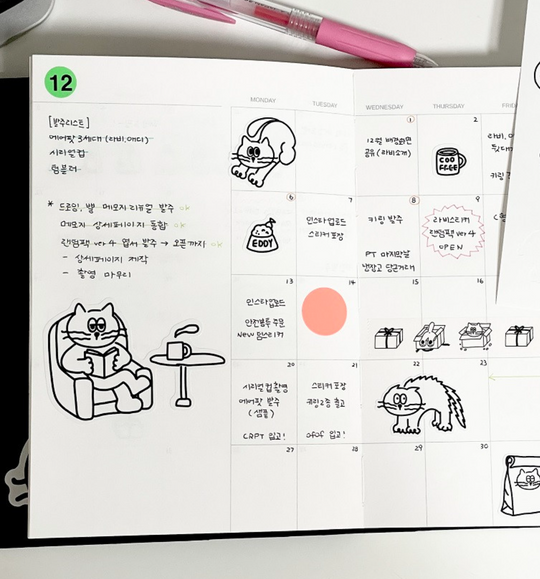 12
MONDAY
TUESDAY
WEDNESDAY
THURSDAY
[발주리스트]
에어팟 3세대 (라비, 애디)
시리얼컵
텀블러
* 드로잉, 별 메모지 리뉴얼 발주 ok
메모지 상세페이지 통합 ok
랜덤팩 ver 4 엽서 발주 → 오픈까지 ok
- 상세페이지 제작
- 촬영 마무리
1
2
12월 배경화면
공유 (라비소개)
COO
FFEE
6
7
8
9
EDDY
인스타 업로드
스티커 포장
키링 발주
PT 마지막날
냉장고 당근거래
라비스티커
랜덤팩 ver 4
OPEN
13
14
15
16
인스타 업로드
안전봉투 주문
New 밈스티커
20
21
22
23
시리얼컵 촬영
에어팟 발주
(샘플)
CRPT 입고!
스티커 포장
키링 2종 출고
ofof 입고!
27
28
29
30